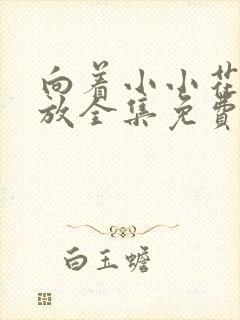 向着小小花
放全集免费
白玉蟾